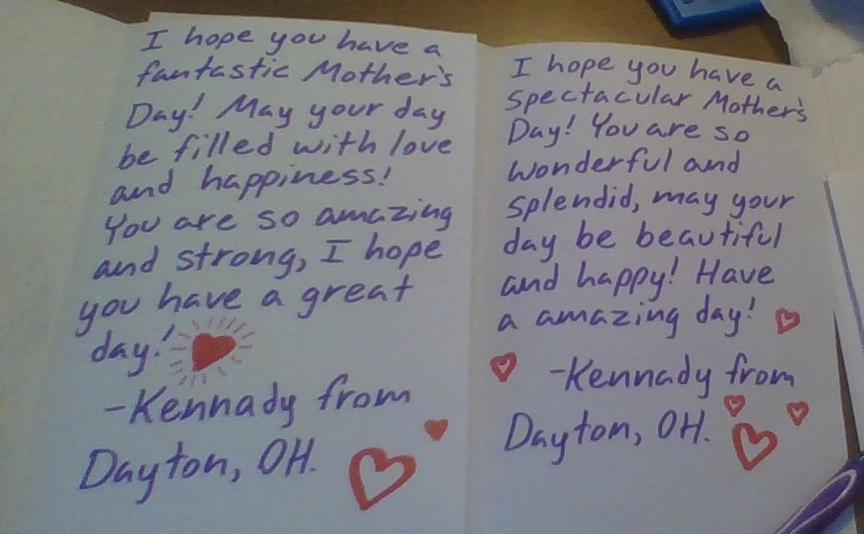 I hope you have a
fantastic Mother's
Day! May your day
be filled with love
and happiness!
You are so amazing
and strong, I hope
you have a great
day!
-Kennady from
Dayton, OH.
I hope you have a
spectacular Mother's
Day! You are so
wonderful and
splendid, may your
day be beautiful
and happy! Have
a amazing day!
-Kennady from
Dayton, OH.